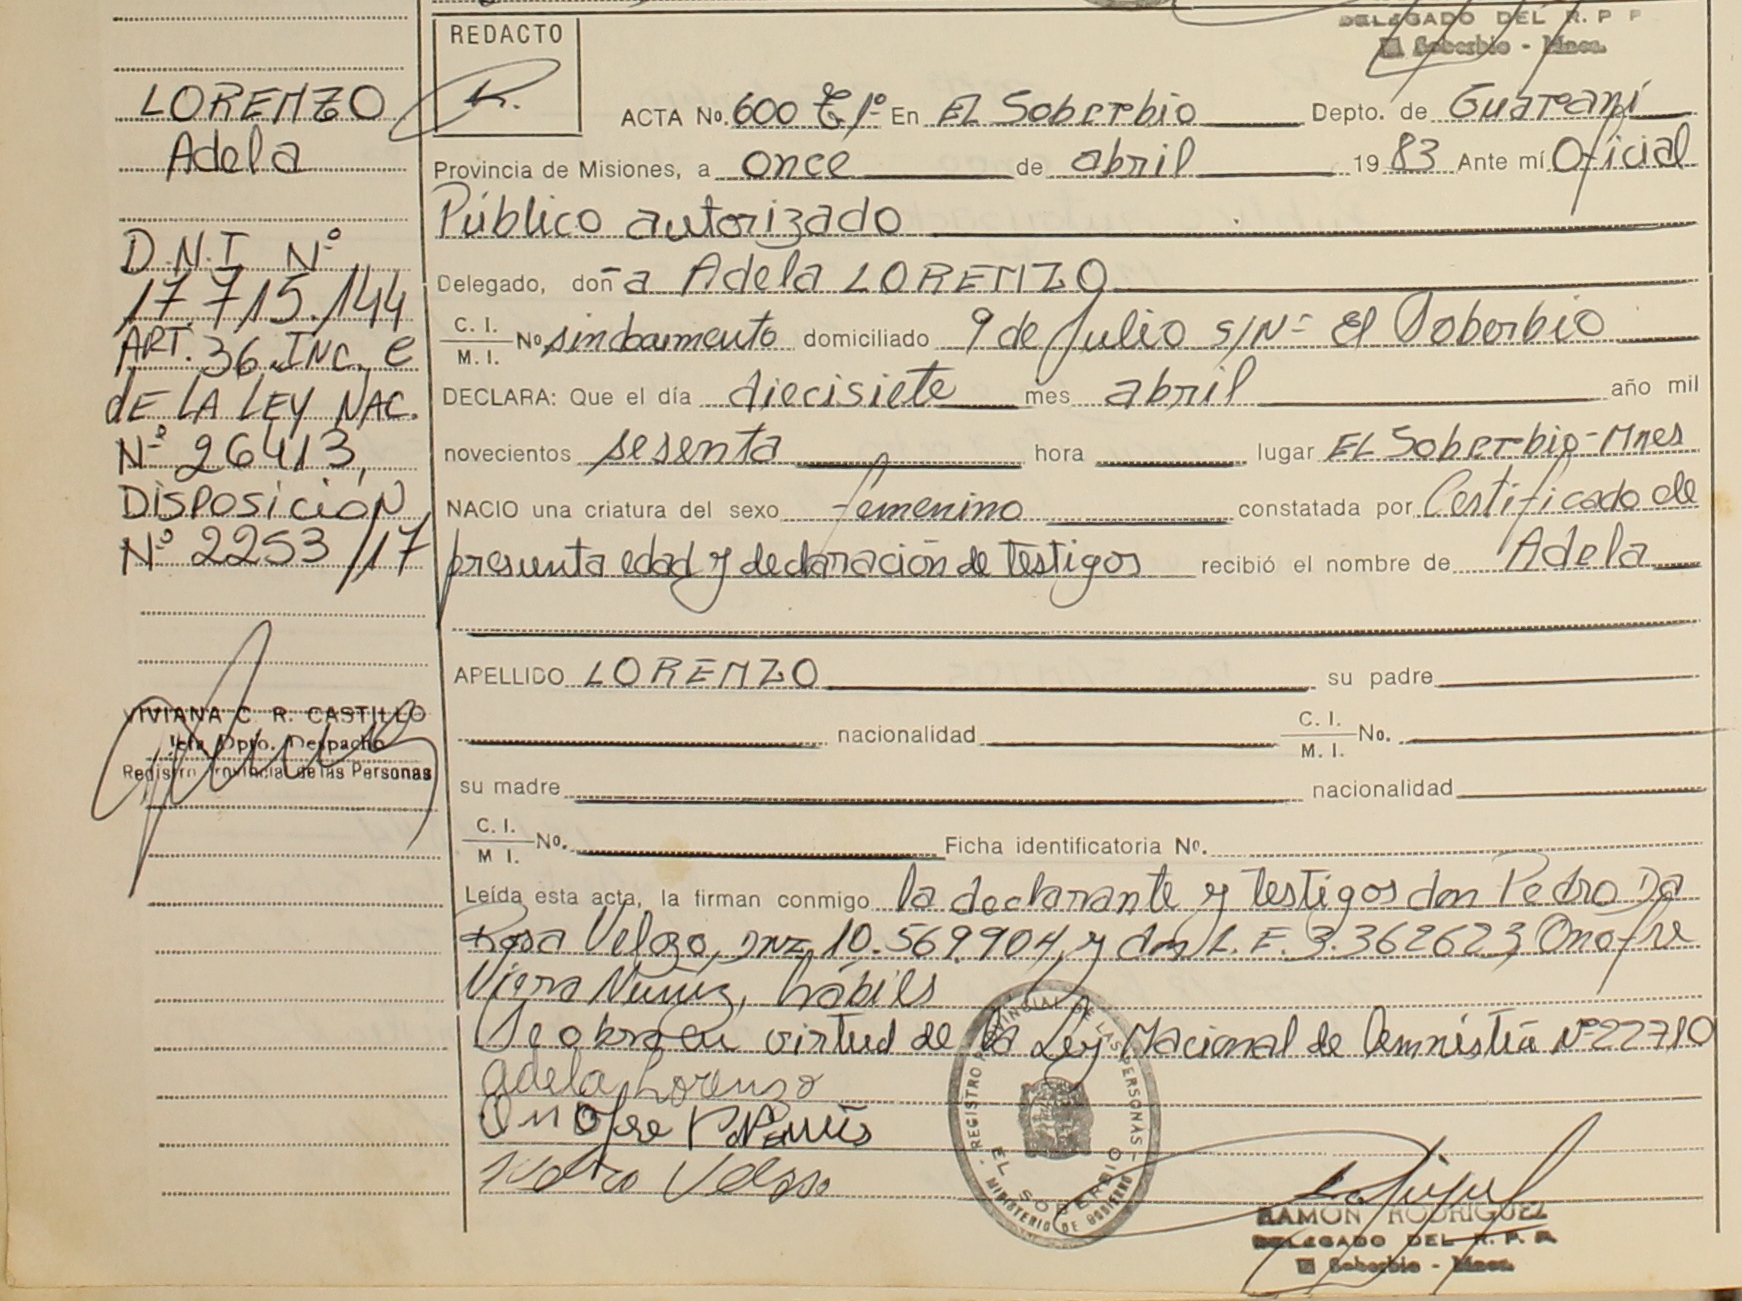 DELEGADO DEL R. P P
El Soberbio - Mnes.
REDACTO
LORENZO
Adela
D.N.I. Nº
17.715.144
ART. 36 INC. e
dE LA LEY NAC.
Nº 26413,
DISPOSICIÓN
Nº 2253/17
VIVIANA C. R. CASTILLO
Jefa Dpto. Despacho
Registro Provincial de las Personas
ACTA No. 600 Tº1º En EL Soberbio Depto. de Guaraní
Provincia de Misiones, a once de abril 1983 Ante mí Oficial
Público autorizado
Delegado, doña Adela LORENZO
C. I. M. I. Nº sindocumento domiciliado 9 de Julio S/Nº El Soberbio
DECLARA: Que el día diecisiete mes abril año mil
novecientos sesenta hora lugar EL Soberbio-Mnes
NACIO una criatura del sexo femenino constatada por Certificado de
presunta edad y declaración de testigos recibió el nombre de Adela
APELLIDO LORENZO su padre
nacionalidad C. I. M. I. No.
su madre nacionalidad
C. I. M I. Nº. Ficha identificatoria Nº.
Leída esta acta, la firman conmigo la declarante y testigos don Pedro Da
Rosa Velozo, DNI. 10.569.904, y don L.E. 3.362623 Onofre
Viera Nuñiz, hábiles
Se obra en virtud de la Ley Nacional de Amnistía Nº 22710
Adela Lorenzo
Onofre
Pedro Velozo
REGISTRO PROVINCIAL DE LAS PERSONAS
EL SOBERBIO
MINISTERIO DE GOBIERNO
RAMON RODRIGUEZ
DELEGADO DEL R. P. P.
El Soberbio - Mnes.